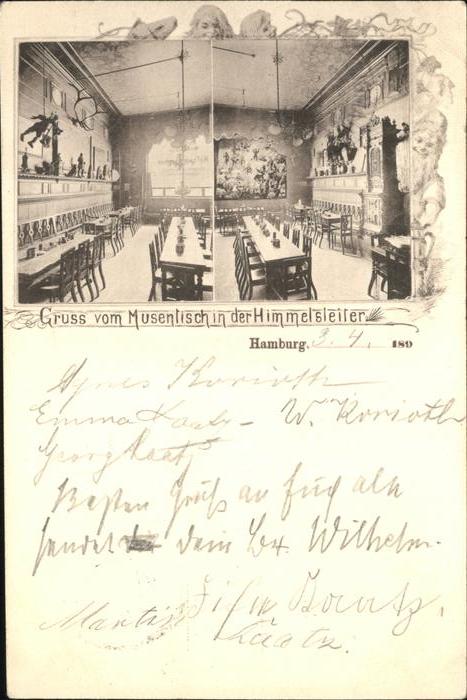 Gruss vom Musentisch in der Himmelsleiter
Hamburg, 3. 4. 189
Agnes Korioth
Emma Kaatz - W. Korioth
Georg Kaatz
Besten Gruß an Euch alle
sendet dein Wilhelm.
Martin
Kaatz.